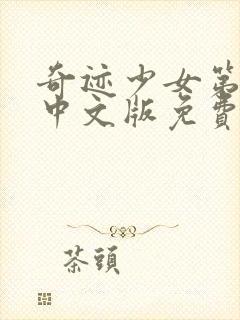 奇迹少女第
中文版免費
茶頭